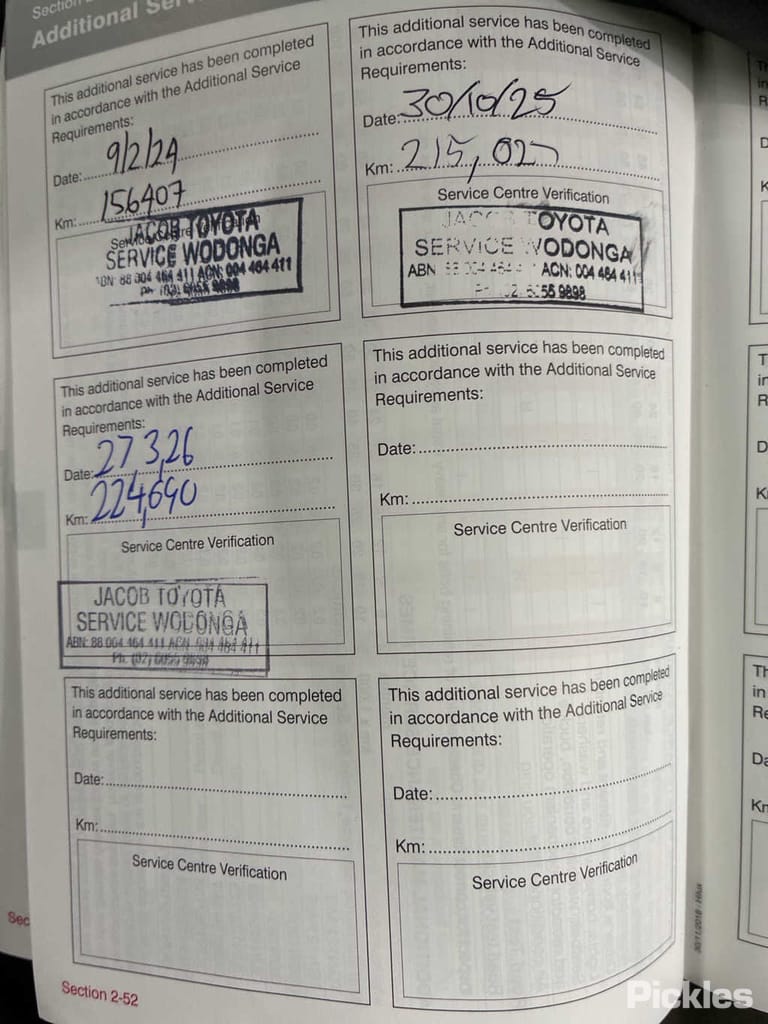 Section
Additional
This additional service has been completed
in accordance with the Additional Service
Requirements:
Date: 9/2/24
Km: 156407
JACOB TOYOTA
SERVICE WODONGA
ABN: 88 004 464 411 ACN: 004 464 411
PH: (02) 6055 9898
This additional service has been completed
in accordance with the Additional Service
Requirements:
Date: 30/10/25
Km: 215,027
Service Centre Verification
JACOB TOYOTA
SERVICE WODONGA
ABN 88 004 464 ACN: 004 464 411
PH 02 6055 9898
This additional service has been completed
in accordance with the Additional Service
Requirements:
Date: 27 3,26
Km: 224,690
Service Centre Verification
JACOB TOYOTA
SERVICE WODONGA
ABN: 88 004 464 411 ACN 004 464 411
Ph. (02) 6055 9898
This additional service has been completed
in accordance with the Additional Service
Requirements:
Date:
Km:
Service Centre Verification
This additional service has been completed
in accordance with the Additional Service
Requirements:
Date:
Km:
Service Centre Verification
This additional service has been completed
in accordance with the Additional Service
Requirements:
Date:
Km:
Service Centre Verification
Section 2-52
Pickles